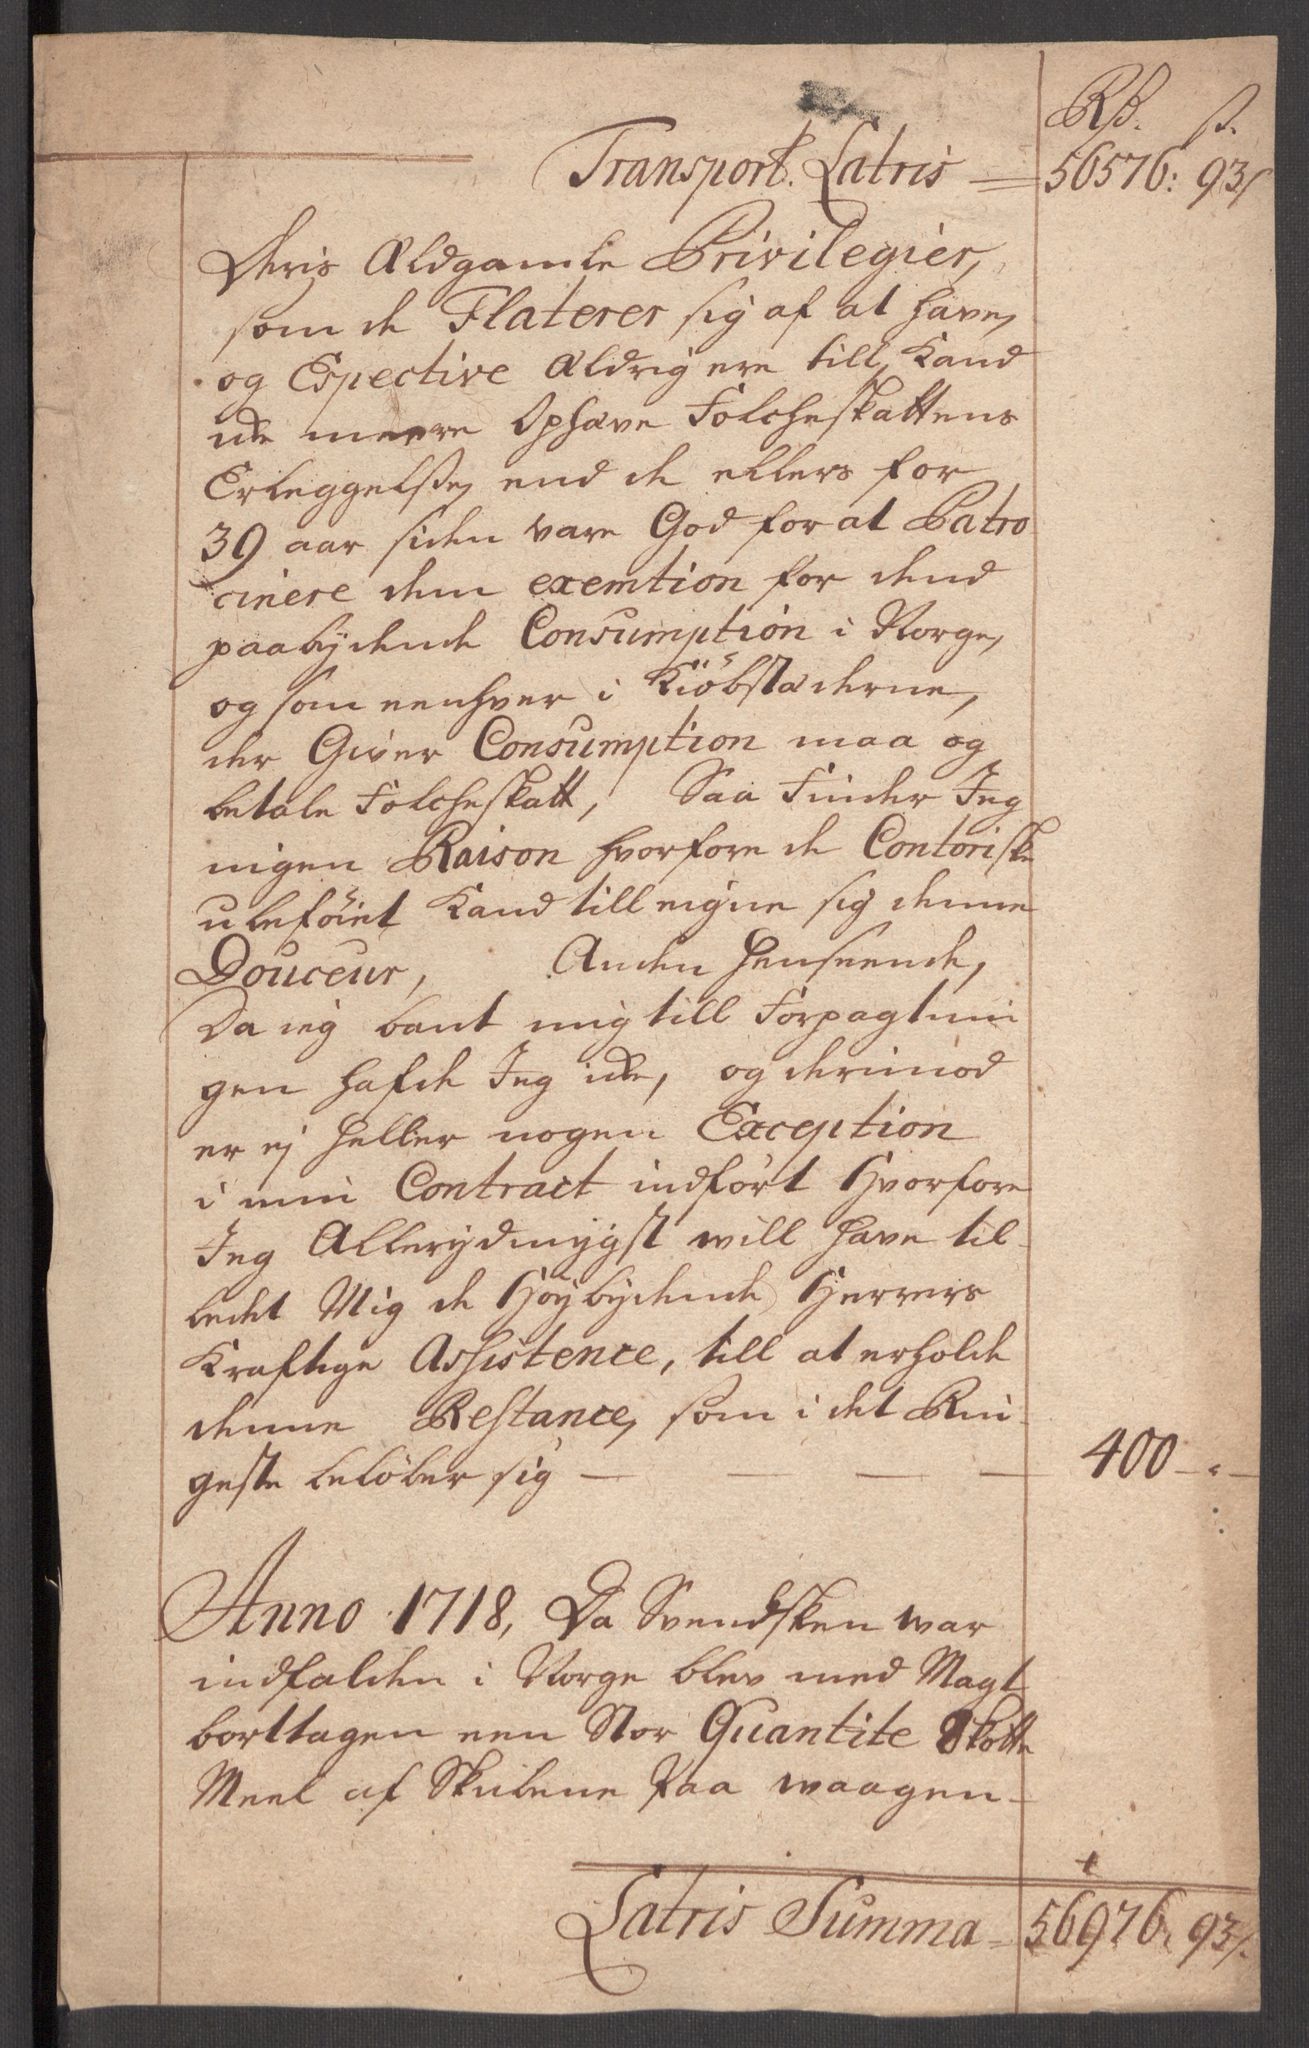 Rd. ß.
Transport Latris = 56576: 93/
Deris Ældgamle Privilegier,
som de Flaterer sig af at have,
og Espective Aldrig ere till, Kand
icke meere Ophæve Folcheskattens
Erleggelse, end de ellers for
39 aar siden vare God for at Patro
cinere dem exemtion for dend
paabydende Consumption i Norge,
og som eenhver i Kiöbstæderne,
der Giver Consumption maa og
betale Folcheskatt, Saa Finder Jeg
ingen Raison hvorfore de Contoriske
ubeföiet Kand till eigne sig denne
Douceur, Anden Henseende,
Da ieg bant mig till Forpagtnin
gen hafde Jeg icke, og derimod
er ej heller nogen Exception
i min Contract indfört Hvorfore
Jeg Allerydmygst will have til
bedet Mig de Höybydende Herrers
Kraftige Assistence, till at erholde
denne Restance, som i det Rin
geste belöber sig — — — — 400 - " -
Anno 1718, Da Svendsken war
indfalden i Norge blev med Magt
borttagen een Stor Quantite Skotte
Meel af Skibene Paa waagen
Latris Summa = 56976: 93/